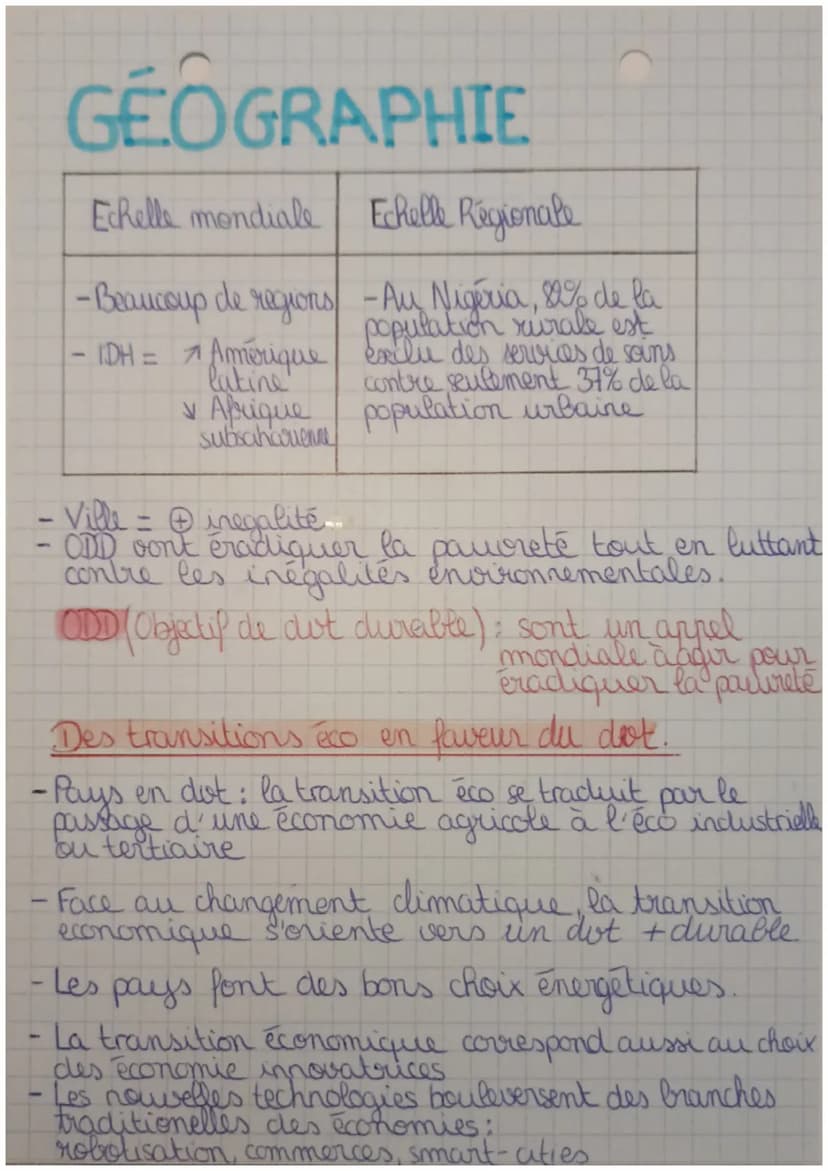 GÉOGRAPHIE
Echelle mondiale
Echelle Régionale
- Beaucoup de regions
- IDH = ↗ Amérique
latine
↘ Afrique
subsaharienne
- Au Nigéria, 82% de la
population rurale est
exclu des services de soins
contre seulement 37% de la
population urbaine
- Ville = ⊕ inegalité
- ODD vont éradiquer la pauvreté tout en luttant
contre les inégalités environnementales.
ODD (Objectif de dvt durable) : sont un appel
mondiale à agir pour
éradiquer la pauvreté
Des transitions éco en faveur du dvt.
- Pays en dvt : la transition éco se traduit par le
passage d'une économie agricole à l'éco industrielle
ou tertiaire
- Face au changement climatique, la transition
economique s'oriente vers un dvt + durable
- Les pays font des bons choix énergétiques.
- La transition économique correspond aussi au choix
des économie innovatrices
- Les nouvelles technologies bouleversent des branches
traditionelles des économies :
robotisation, commerces, smart-cities